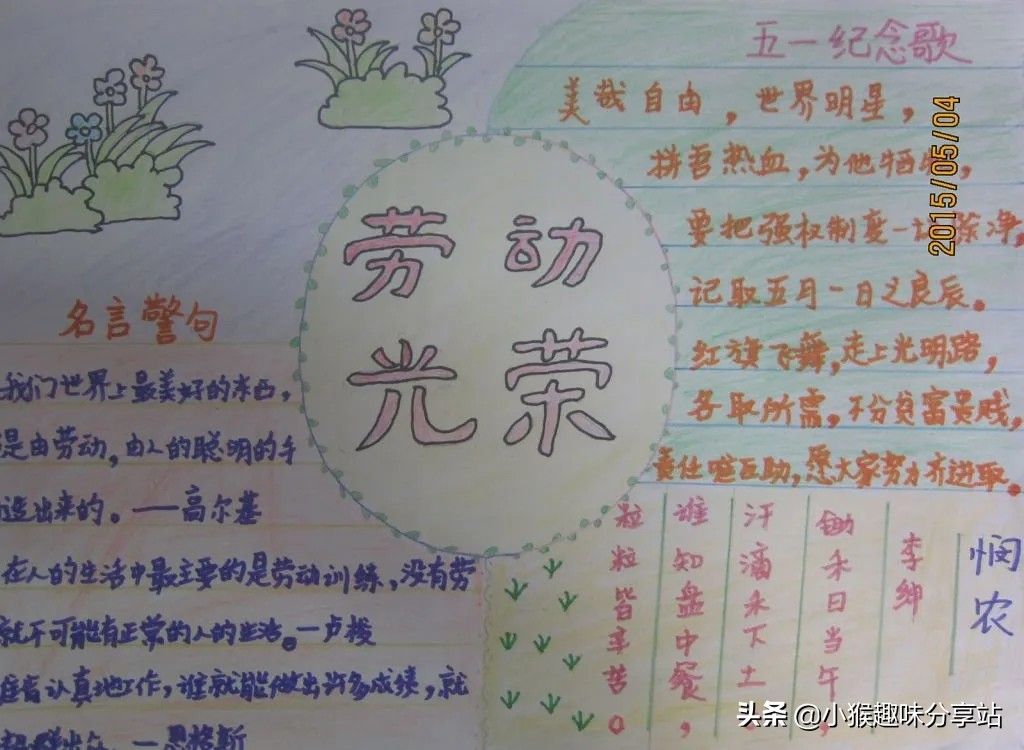 五一纪念歌
美哉自由，世界明星，
拼吾热血，为他牺牲，
要把强权制度一切除净，
记取五月一日之良辰。
红旗飞舞，走上光明路，
各取所需，不分贫富贵贱，
责任唯互助，愿大家努力齐进取。
2015/05/04
劳动
光荣
名言警句
我们世界上最美好的东西，
是由劳动，由人的聪明的手
造出来的。——高尔基
在人的生活中最主要的是劳动训练，没有劳
就不可能有正常的人的生活。—卢梭
谁肯认真地工作，谁就能做出许多成绩，就
—恩格斯
悯农
李绅
锄禾日当午，
汗滴禾下土。
谁知盘中餐，
粒粒皆辛苦。
头条 @小猴趣味分享站